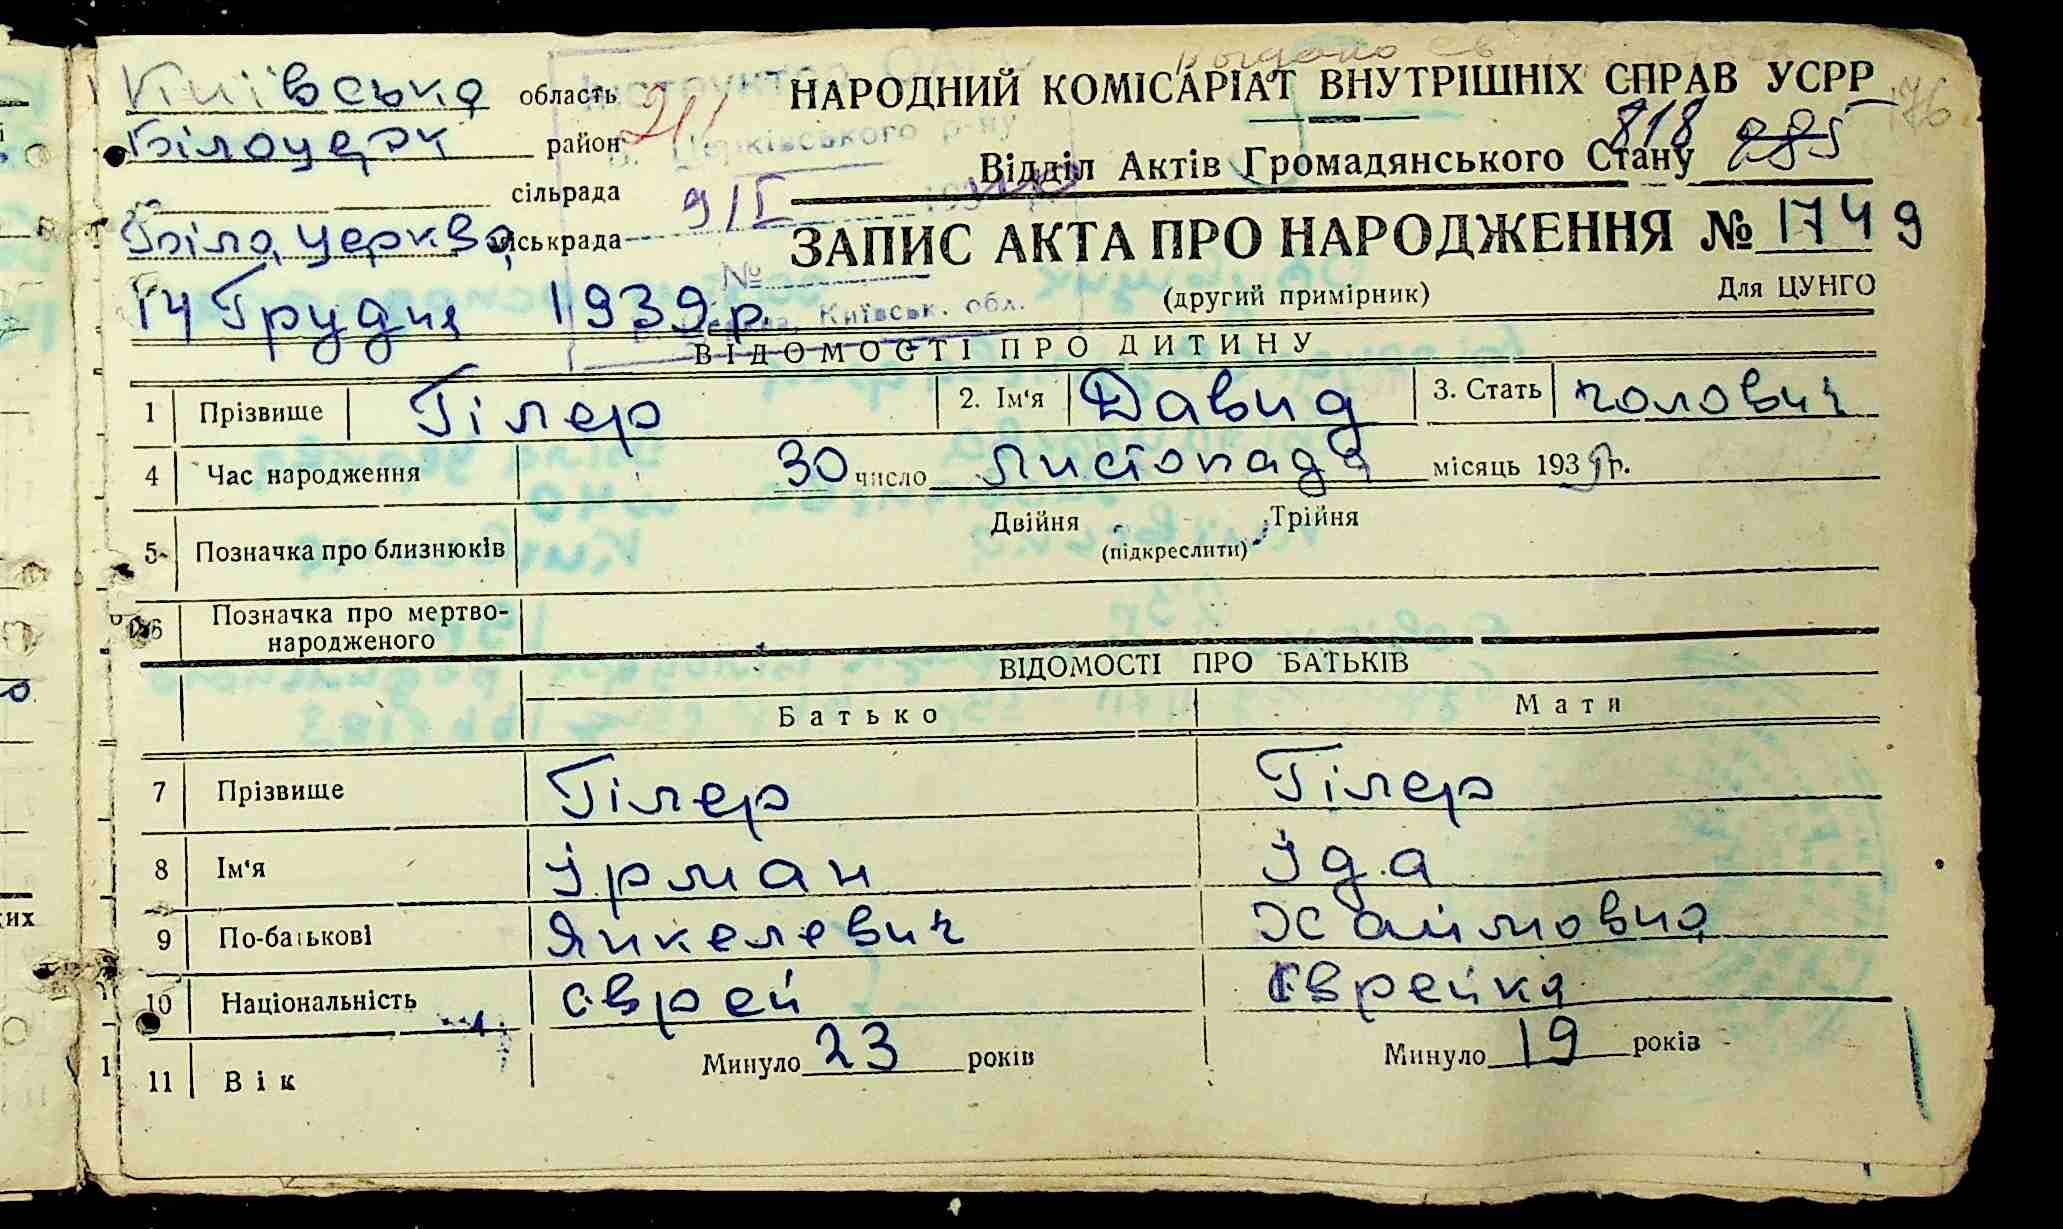 Київська область
Білоцерк район
сільрада
Біла церква міськрада
14 Грудня 1939 р.
НАРОДНИЙ КОМІСАРІАТ ВНУТРІШНІХ СПРАВ УСРР
Відділ Актів Громадянського Стану
818
ЗАПИС АКТА ПРО НАРОДЖЕННЯ № 1749
(другий примірник) Для ЦУНГО
9/I
№
Київськ. обл.
ВІДОМОСТІ ПРО ДИТИНУ
1 Прізвище Гілер 2. Ім'я Давид 3. Стать чоловіч
4 Час народження 30 число Листопада місяць 1939 р.
5 Позначка про близнюків Двійня Трійня
(підкреслити)
6 Позначка про мертво-
народженого
ВІДОМОСТІ ПРО БАТЬКІВ
Батько Мати
7 Прізвище Гілер Гілер
8 Ім'я Ірман Іда
9 По-батькові Янкелевич Хаймовна
10 Національність єврей єврейка
11 Вік Минуло 23 років Минуло 19 років